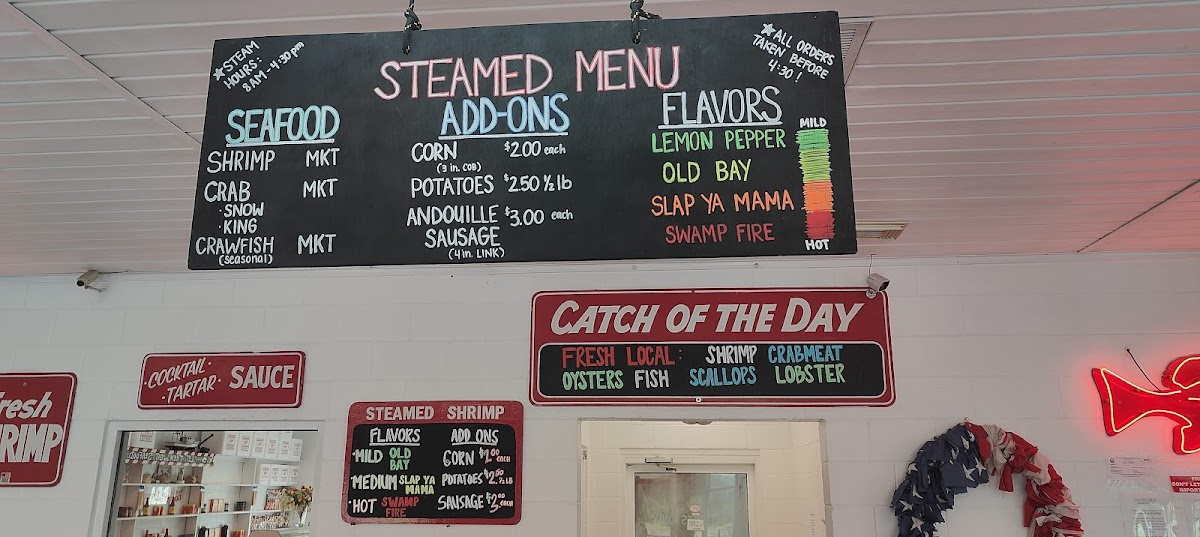 ★STEAM
HOURS:
8AM-4:30pm
STEAMED MENU
★ALL ORDERS
TAKEN BEFORE
4:30!
SEAFOOD
SHRIMP MKT
CRAB MKT
·SNOW
·KING
CRAWFISH MKT
(seasonal)
ADD-ONS
CORN $2.00 each
(3 in. COB)
POTATOES $2.50 ½ lb
ANDOUILLE $3.00 each
SAUSAGE
(4 in. LINK)
FLAVORS
MILD
LEMON PEPPER
OLD BAY
SLAP YA MAMA
SWAMP FIRE
HOT
CATCH OF THE DAY
FRESH LOCAL: SHRIMP CRABMEAT
OYSTERS FISH SCALLOPS LOBSTER
·COCKTAIL·
·TARTAR· SAUCE
STEAMED SHRIMP
FLAVORS
·MILD OLD
BAY
·MEDIUM SLAP YA
MAMA
·HOT SWAMP
FIRE
ADD ONS
CORN
EACH
POTATOES $2.50
½ LB
SAUSAGE
EACH